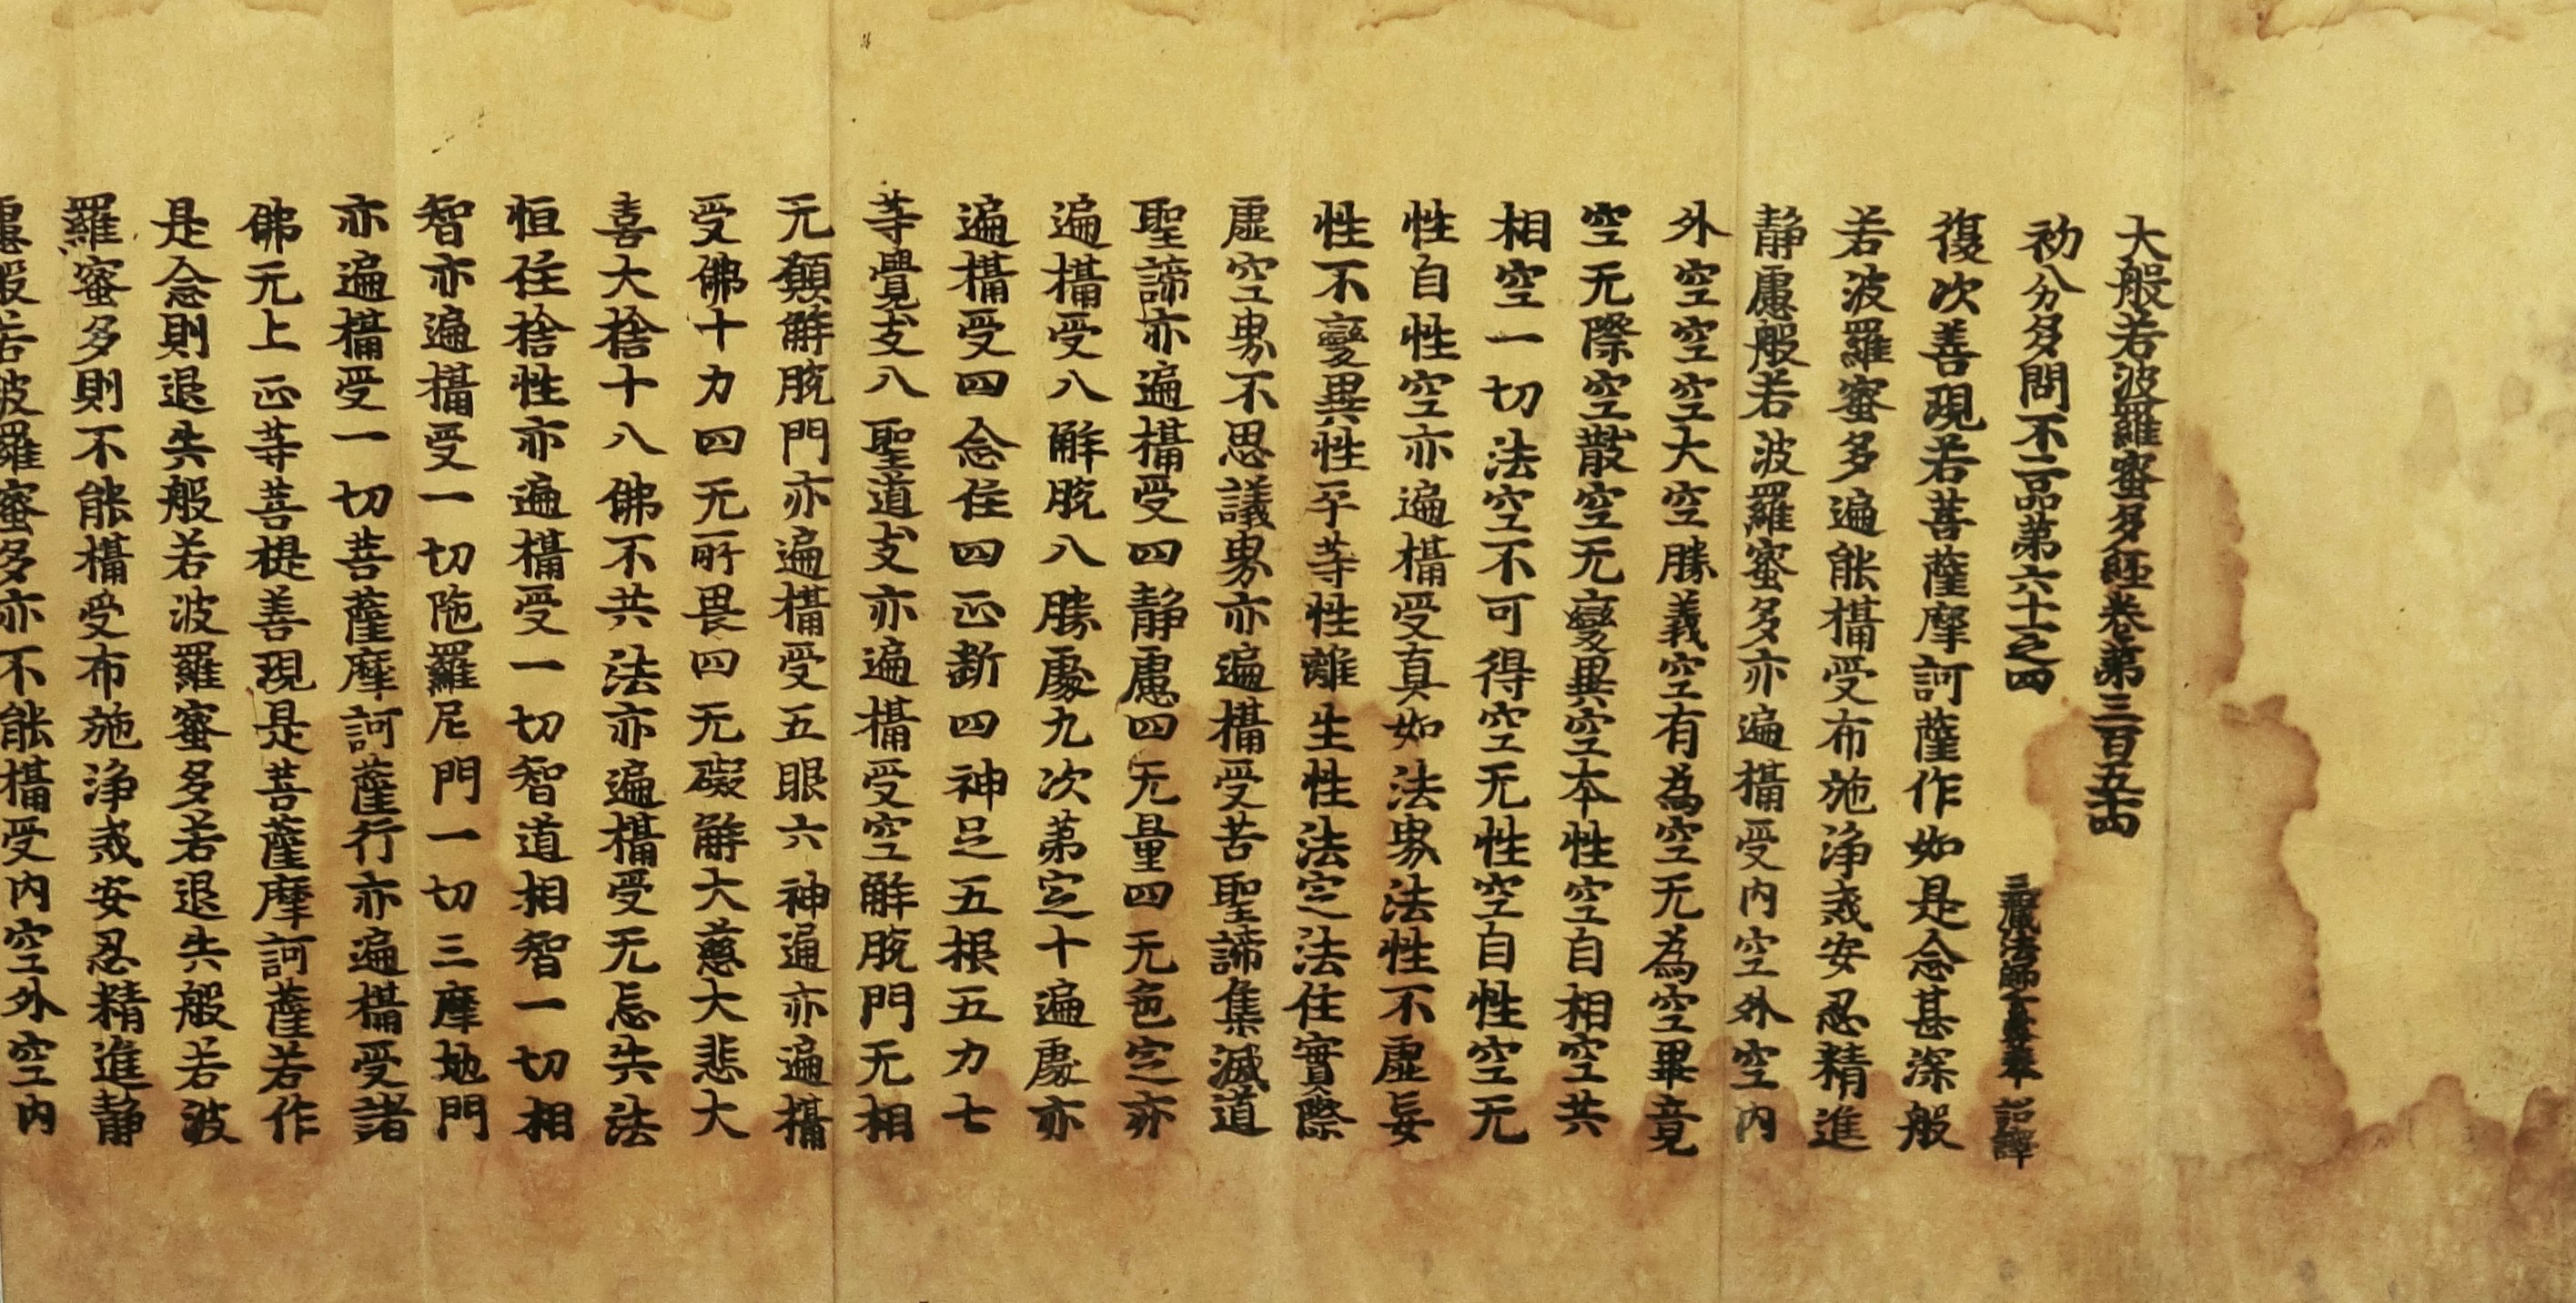 大般若波羅蜜多経卷第三百五十四
初分多問不二品第六十一之四
三藏法師玄奘奉 詔譯
復次善現若菩薩摩訶薩作如是念甚深般
若波羅蜜多遍能攝受布施淨戒安忍精進
靜慮般若波羅蜜多亦遍攝受內空外空內
外空空空大空勝義空有為空无為空畢竟
空无際空散空无變異空本性空自相空共
相空一切法空不可得空无性空自性空无
性自性空亦遍攝受真如法界法性不虛妄
性不變異性平等性離生性法定法住實際
虛空界不思議界亦遍攝受苦聖諦集滅道
聖諦亦遍攝受四靜慮四无量四无色定亦
遍攝受八解脫八勝處九次第定十遍處亦
遍攝受四念住四正斷四神足五根五力七
等覺支八聖道支亦遍攝受空解脫門无相
无願解脫門亦遍攝受五眼六神通亦遍攝
受佛十力四无所畏四无礙解大慈大悲大
喜大捨十八佛不共法亦遍攝受无忘失法
恒住捨性亦遍攝受一切智道相智一切相
智亦遍攝受一切陁羅尼門一切三摩地門
亦遍攝受一切菩薩摩訶薩行亦遍攝受諸
佛无上正等菩提善現是菩薩摩訶薩若作
是念則退失般若波羅蜜多若退失般若波
羅蜜多則不能攝受布施淨戒安忍精進靜
慮般若波羅蜜多亦不能攝受內空外空內